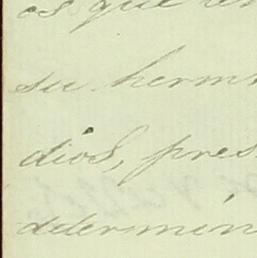 es que
su herm
dios, pres
determin